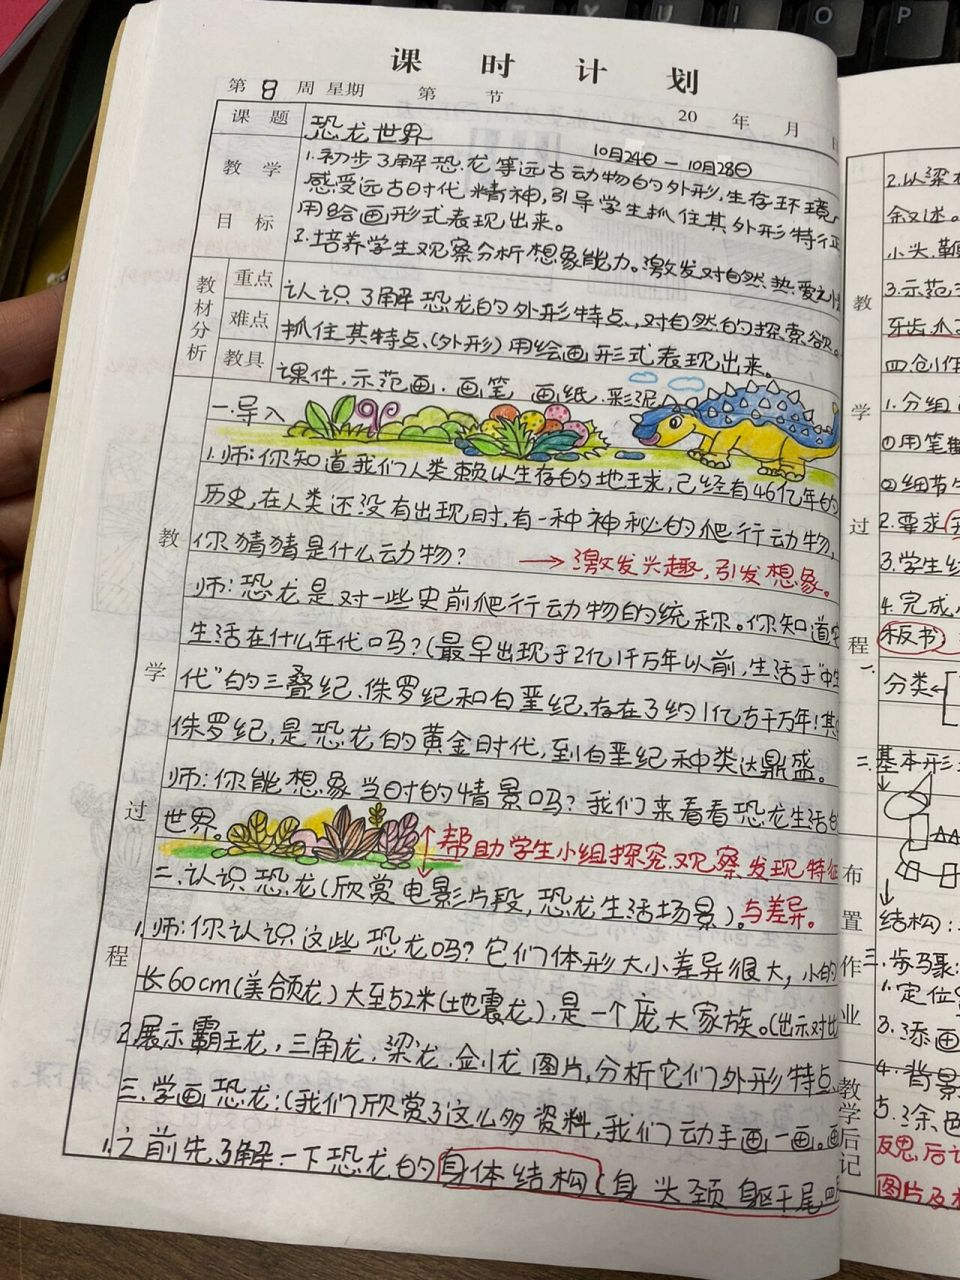 课时计划
第8周 星期 第 节 20 年 月 日
课题 恐龙世界
10月24日—10月28日
教学目标
1.初步了解恐龙等远古动物的外形,生存环境,
感受远古时代精神,引导学生抓住其外形特征
用绘画形式表现出来。
2.培养学生观察分析想象能力。激发对自然热爱之
教材分析
重点 认识了解恐龙的外形特点,对自然的探索欲。
难点 抓住其特点(外形)用绘画形式表现出来。
教具 课件.示范画.画笔 画纸.彩泥
教学过程
一.导入
1.师:你知道我们人类赖以生存的地球,已经有46亿年的
历史,在人类还没有出现时,有一种神秘的爬行动物,
你猜猜是什么动物? →激发兴趣,引发想象。
师:恐龙是对一些史前爬行动物的统称。你知道它
生活在什么年代吗?(最早出现于2亿1千万年以前,生活于"中生
代"的三叠纪.侏罗纪和白垩纪,存在了约1亿
侏罗纪,是恐龙的黄金时代,到白垩纪种类达鼎盛。
师:你能想象当时的情景吗?我们来看看恐龙生活的
世界。
帮助学生小组探究.观察.发现特征
与差异。
二.认识恐龙(欣赏电影片段,恐龙生活场景)。
1.师:你认识这些恐龙吗?它们体形大小差异很大,小的
长60cm(美颌龙)大至52米(地震龙),是一个庞大家族。(出示对比
2.展示霸王龙,三角龙,梁龙.剑龙图片,分析它们外形特点
三.学画恐龙:(我们欣赏了这么多资料,我们动手画一画。画
1.之前先了解一下恐龙的身体结构(身 头 颈 躯干 尾 四
教学过程
2.以梁
叙述。
小头.
3.示范
牙齿.爪
四创作
1.分组
①用笔
②细节
2.要求
3.学生
4.完成
板书
一.
分类
二.基本形
结构:
三.步骤:
1.定位
3.添画
4.背景
5.涂色
布置作业
教学后记
反思.后记
图片及